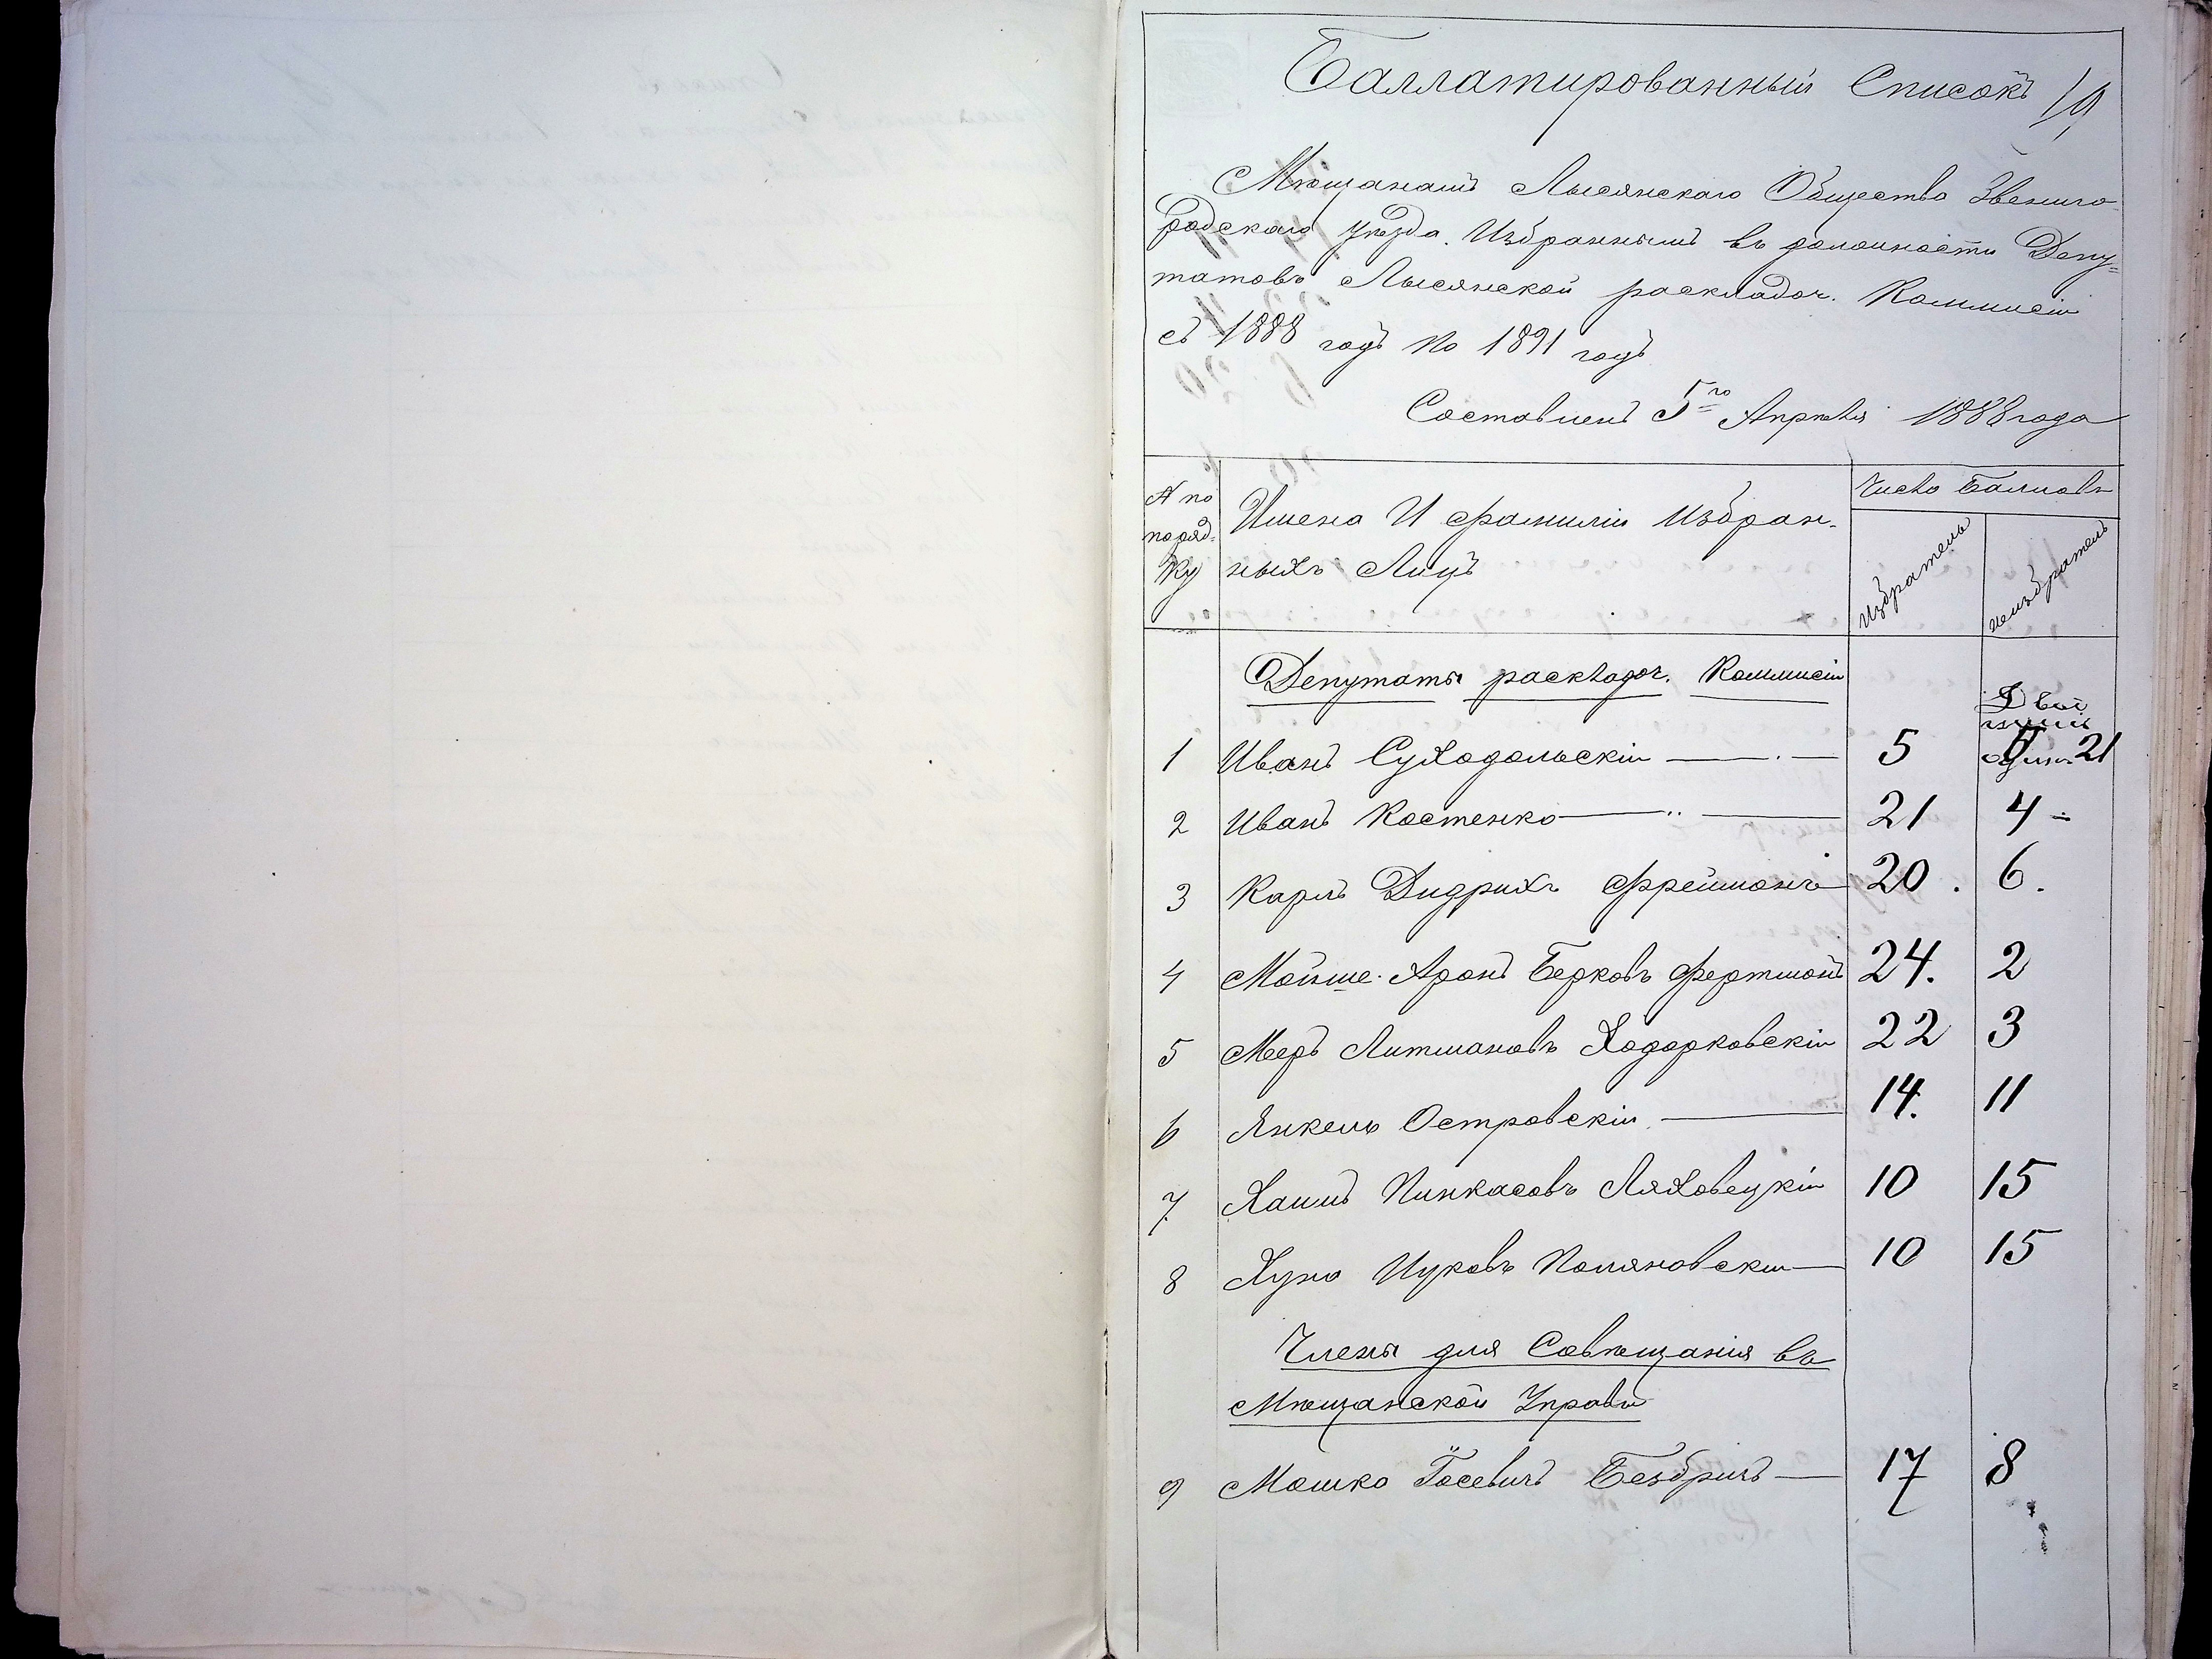 Баллатированный Списокъ
19
Мѣщанамъ Лысянскаго Общества Звениго-
родскаго уѣзда. Избраннымъ въ должности Депу=
татовъ Лысянской раскладоч. Коммисіи
съ 1888 годъ по 1891 годъ
Составленъ 5го Апрѣля 1888 года
№ по поряд-ку
Имена И фамиліи Избран-
ныхъ Лицъ
Число Балловъ
Избратель
неизбратель
Депутаты расклад​оч. Коммисіи
1 Иванъ Суходольскій 5 21
2 Иванъ Костенко 21 4
3 Карлъ Дидрихъ Фрейманъ 20. 6.
4 Мойше-Аронъ Берковъ Фертманъ 24. 2
5 Мееръ Литмановъ Ходорковскій 22 3
6 Янкель Островскій 14. 11
7 Хаимъ Пинкасовъ Ляховецкій 10 15
8 Хуна Ицковъ Поляновскій 10 15
Члены для Совѣщанія въ
Мѣщанской Управѣ
9 Мошко Іосевичъ 17 8